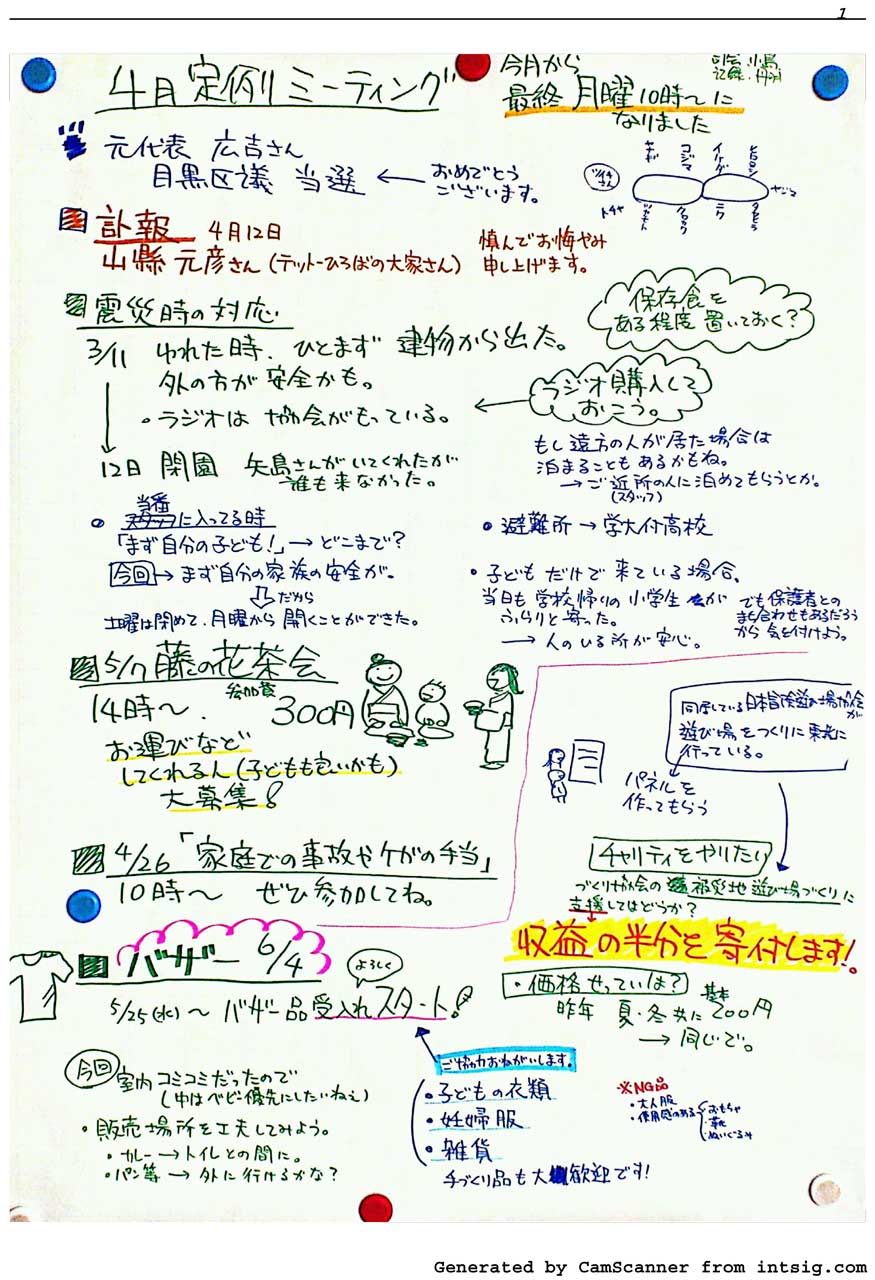 1
4月定例ミーティング
今月から
最終 月曜 10時〜に
なりました
司会 小島
記録
元代表 広吉さん
目黒区議 当選 ← おめでとう
ございます。
コジマ
イケダ
ヤジマ
ニワ
クロカワ
訃報 4月12日
山縣 元彦さん(テットーひろばの大家さん)
慎んでお悔やみ
申し上げます。
震災時の対応
保存食を
ある程度 置いておく?
3/11 ゆれた時、ひとまず 建物から出た。
外の方が安全かも。
・ラジオは 協会がもっている。
ラジオ購入して
おこう。
12日 閉園 矢島さんがいてくれたが
誰も来なかった。
もし遠方の人が居た場合は
泊まることもあるかもね。
→ご近所の人に泊めてもらうとか。
(スタッフ)
当番
スタッフに入ってる時
「まず自分の子ども!」→どこまで?
今回→まず自分の家族の安全が。
だから
土曜は閉めて、月曜から開くことができた。
・避難所→学大付高校
・子どもだけで来ている場合、
当日も学校帰りの小学生が
ふらりと寄った。
→人のいる所が安心。
でも保護者との
まち合わせもあるだろう
から気を付けよう。
5/7 藤の花茶会
14時〜. 参加費 300円
お運びなど
してくれる人(子どもも良いかも)
大募集!
同居している日本冒険遊び場が
遊び場をつくりに東北に
行っている。
パネルを
作ってもらう
4/26「家庭での事故やケガの手当」
10時〜 ぜひ参加してね。
チャリティをやりたい
づくり協会の 被災地遊び場づくりに
支援してはどうか?
収益の半分を寄付します!
バザー 6/4
よろしく
5/25(水)〜 バザー品受入れスタート!
・価格せっていは?
昨年 夏・冬共に 基本 200円
→同じで。
ご協力おねがいします。
・子どもの衣類
・妊婦服
・雑貨
手づくり品も大歓迎です!
※NG品
・大人服
・使用感のある
おもちゃ
靴
ぬいぐるみ
今回 室内コミコミだったので
(中はベビー優先にしたいねぇ)
・販売場所を工夫してみよう。
・カレー→トイレとの間に。
・パン等→外に行けるかな?
Generated by CamScanner from intsig.com